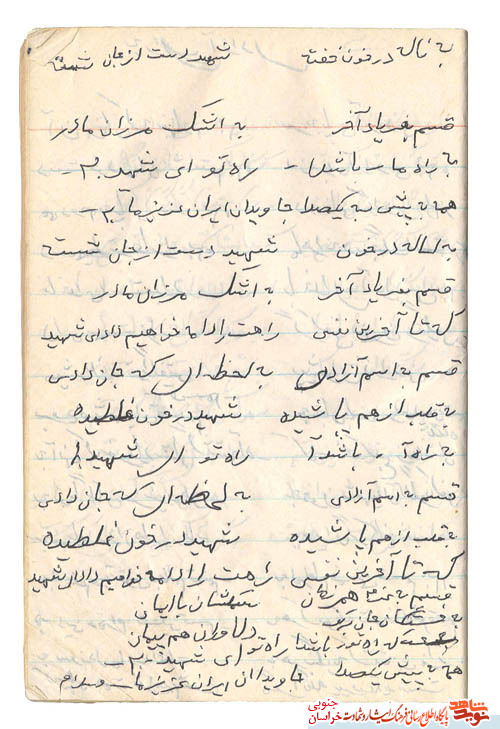 به ناله در خون خفته شهید دست از جان شسته
قسم بفریاد آخر به اشک لرزان مادر
به راه ما باشد راه تو ای شهید
همه به پیش به یکصدا جاویدان ایران عزیز ما
به لاله در خون شهید دست از جان شسته
قسم بفریاد آخر به اشک لرزان مادر
که تا آخرین نفس راهت را ادامه خواهیم داد ای شهید
قسم به اسم آزادی به لحظه ای که جان دادی
به قلب از هم پاشیده شهید در خون غلطیده
به راه باشد راه تو ای شهید
قسم به اسم آزادی به لحظه ای که جان دادی
به قلب از هم پاشیده شهید در خون غلطیده
که تا آخرین نفس راهت را ادامه خواهیم داد ای شهید
قسم به
جان
دلاوران هم پیمان
که راه تو باشد راه تو ای شهید
همه به پیش یکصدا جاویدان ایران عزیز ما
نوید شاهد
پایگاه اطلاع رسانی فرهنگ ایثار و شهادت خراسان جنوبی